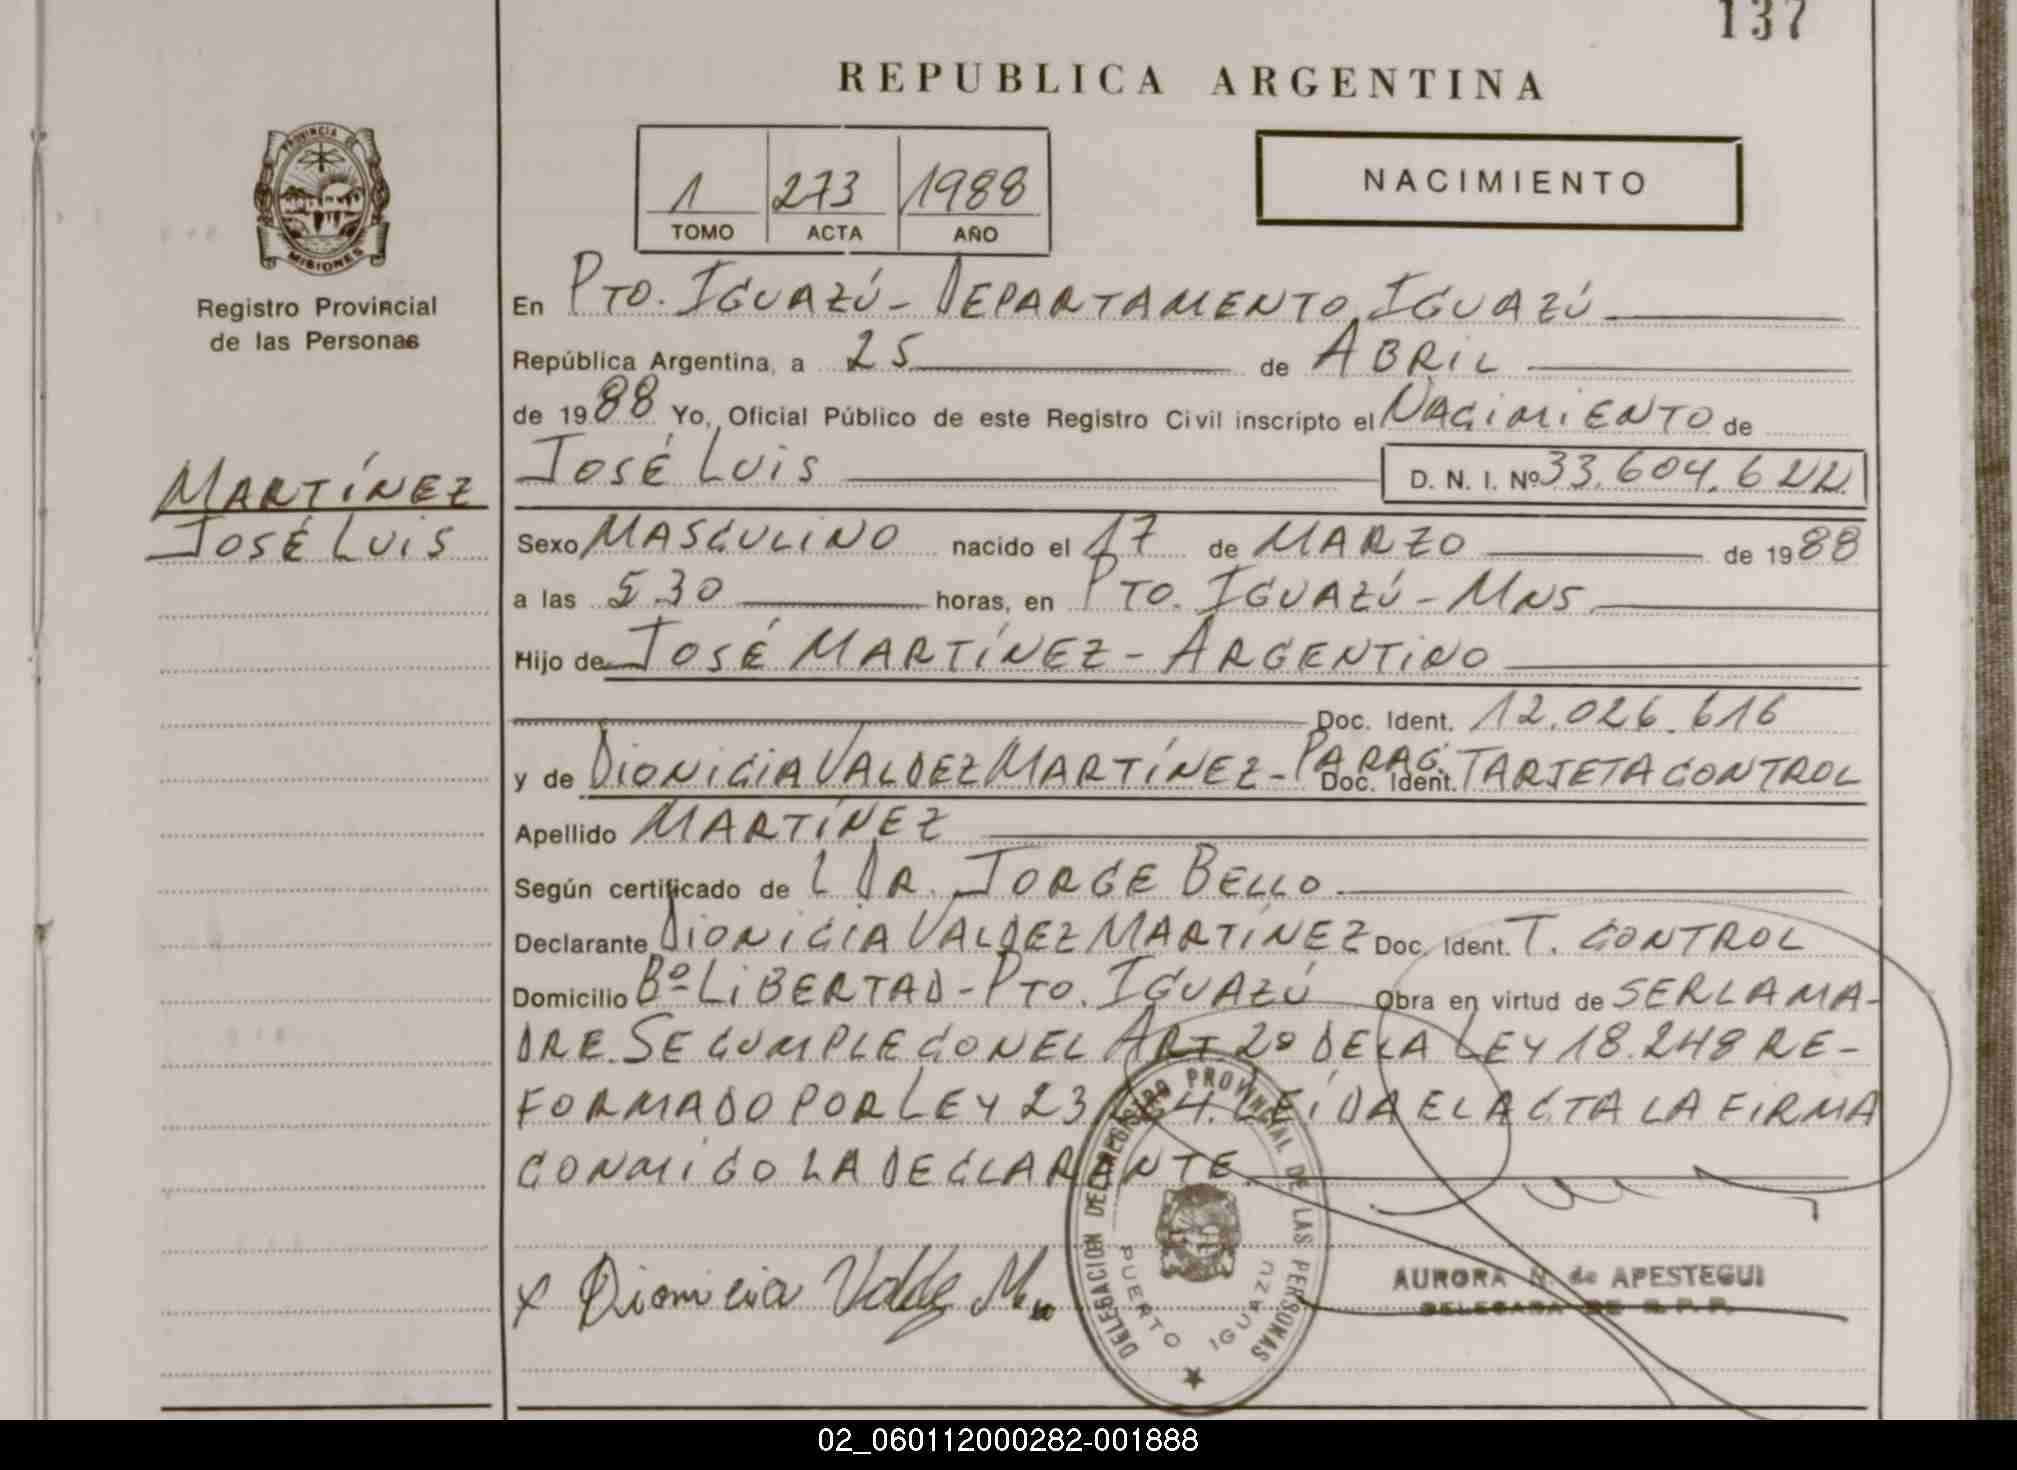 137
REPUBLICA ARGENTINA
PROVINCIA DE
MISIONES
Registro Provincial
de las Personas
1 273 1988
TOMO ACTA AÑO
NACIMIENTO
En PTO. IGUAZÚ - DEPARTAMENTO IGUAZÚ
República Argentina, a 25 de ABRIL
de 1988 Yo, Oficial Público de este Registro Civil inscripto el NACIMIENTO de
MARTÍNEZ
JOSÉ LUIS
JOSÉ LUIS D. N. I. Nº 33.604.622
Sexo MASCULINO nacido el 17 de MARZO de 1988
a las 5.30 horas, en PTO. IGUAZÚ - MNS
Hijo de JOSÉ MARTÍNEZ - ARGENTINO
Doc. Ident. 12.026.616
y de DIONICIA VALDEZ MARTÍNEZ - PARAG. Doc. Ident. TARJETA CONTROL
Apellido MARTÍNEZ
Según certificado de L DR. JORGE BELLO
Declarante DIONICIA VALDEZ MARTÍNEZ Doc. Ident. T. CONTROL
Domicilio Bº LIBERTAD - PTO. IGUAZÚ Obra en virtud de SER LA MA-
DRE. SE CUMPLE CON EL ART 2º DE LA LEY 18.248 RE-
FORMADO POR LEY 23 LEÍDA EL ACTA LA FIRMA
CONMIGO LA DECLARANTE.
x Dionicia Valdez M.
DELEGACION DEL REGISTRO PROVINCIAL DE LAS PERSONAS
PUERTO IGUAZU
AURORA N. de APESTEGUI
DELEGADA DE R. P. P.
02_060112000282-001888